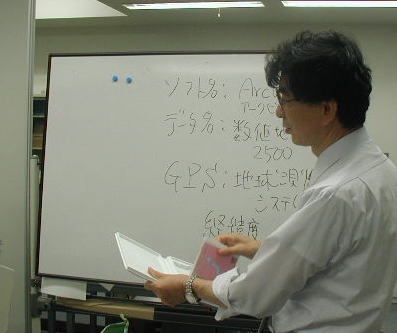 ソフト名: Arc
アークビ
データ名: 数値地
2500
GPS: 地球測
システム
経緯度